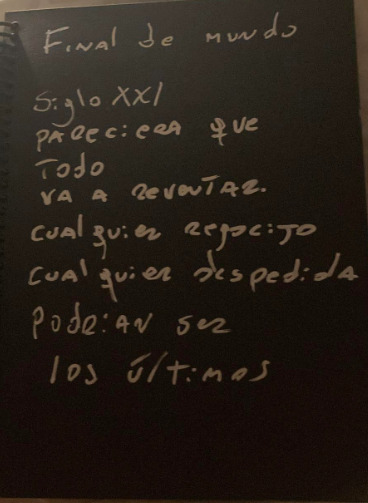 Final de mundo
Siglo XXI
pareciera que
todo
va a reventar.
cualquier regocijo
cualquier despedida
podrian ser
los últimos